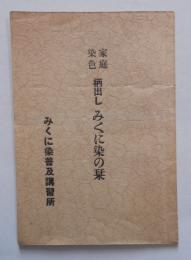 家庭染色 柄出し みくに染の栞
みくに染普及講習所